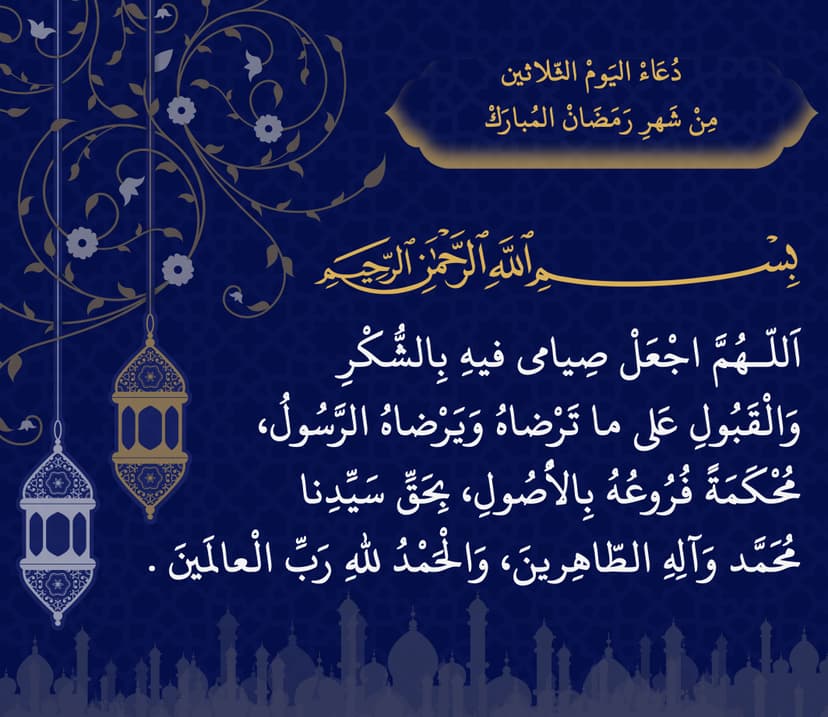 دُعَاءْ اليَومْ الثّلاثين
مِنْ شَهرِ رَمَضَانْ المُبارَكْ
بِسْمِ ٱللَّهِ ٱلرَّحْمَٰنِ ٱلرَّحِيمِ
اَللّـهُمَّ اجْعَلْ صِيامى فيهِ بِالشُّكْرِ
وَالْقَبُولِ عَلى ما تَرْضاهُ وَيَرْضاهُ الرَّسُولُ،
مُحْكَمَةً فُرُوعُهُ بِالأُصُولِ، بِحَقِّ سَيِّدِنا
مُحَمَّد وَآلِهِ الطّاهِرينَ، وَالْحَمْدُ للهِ رَبِّ الْعالَمَينَ .